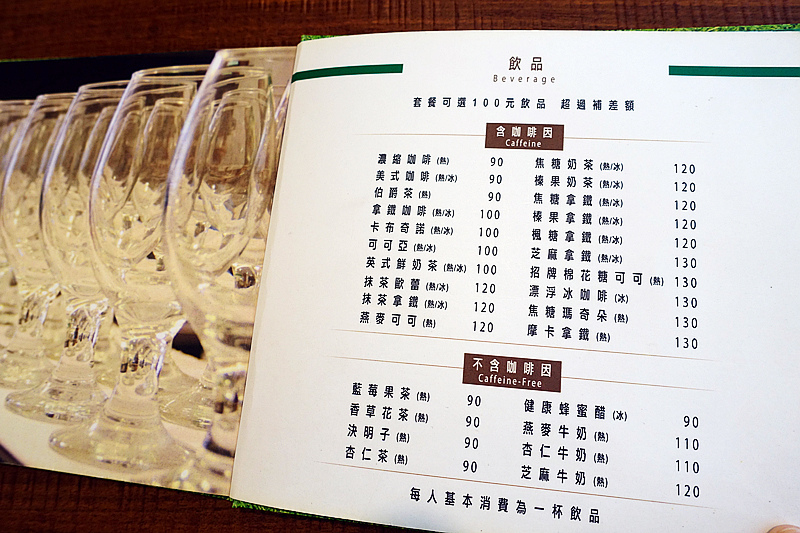 飲品
Beverage
套餐可選100元飲品 超過補差額
含咖啡因
Caffeine
濃縮咖啡(熱) 90
美式咖啡(熱/冰) 90
伯爵茶(熱) 90
拿鐵咖啡(熱/冰) 100
卡布奇諾(熱/冰) 100
可可亞(熱/冰) 100
英式鮮奶茶(熱/冰) 100
抹茶歐蕾(熱/冰) 120
抹茶拿鐵(熱/冰) 120
燕麥可可(熱) 120
焦糖奶茶(熱/冰) 120
榛果奶茶(熱/冰) 120
焦糖拿鐵(熱/冰) 120
榛果拿鐵(熱/冰) 120
楓糖拿鐵(熱/冰) 120
芝麻拿鐵(熱/冰) 130
招牌棉花糖可可(熱) 130
漂浮冰咖啡(冰) 130
焦糖瑪奇朵(熱) 130
摩卡拿鐵(熱/冰) 130
不含咖啡因
Caffeine-Free
藍莓果茶(熱) 90
香草花茶(熱) 90
決明子(熱) 90
杏仁茶(熱) 90
健康蜂蜜醋(冰) 90
燕麥牛奶(熱) 110
杏仁牛奶(熱) 110
芝麻牛奶(熱) 120
每人基本消費為一杯飲品